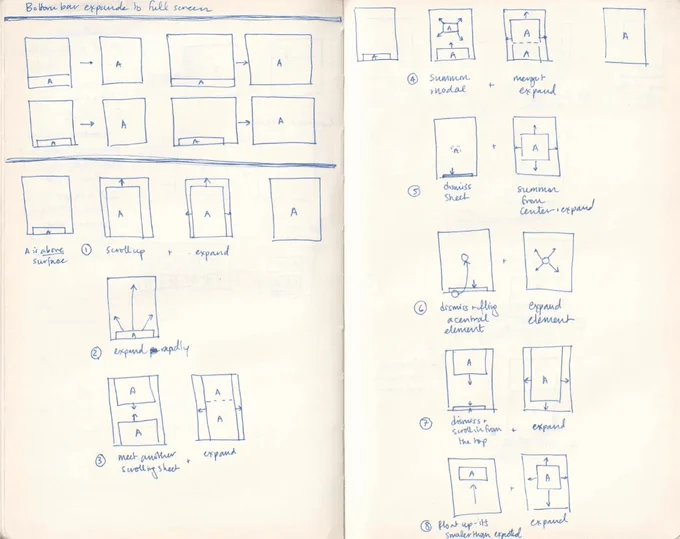 Bottom bar expands to full screen
A
A
A
A
A
A
A
A
A
A
A
A
A is above surface
① scroll up + expand
A
② expand rapidly
A
A
A
A
③ meet another scrolling sheet + expand
A
A
A
A
A
A
④ summon modal + merge & expand
A
A
⑤ dismiss sheet + summon from center + expand
⑥ dismiss + fling a central element + expand element
A
A
⑦ dismiss + scroll in from the top + expand
A
A
⑧ float up - its smaller than expected + expand